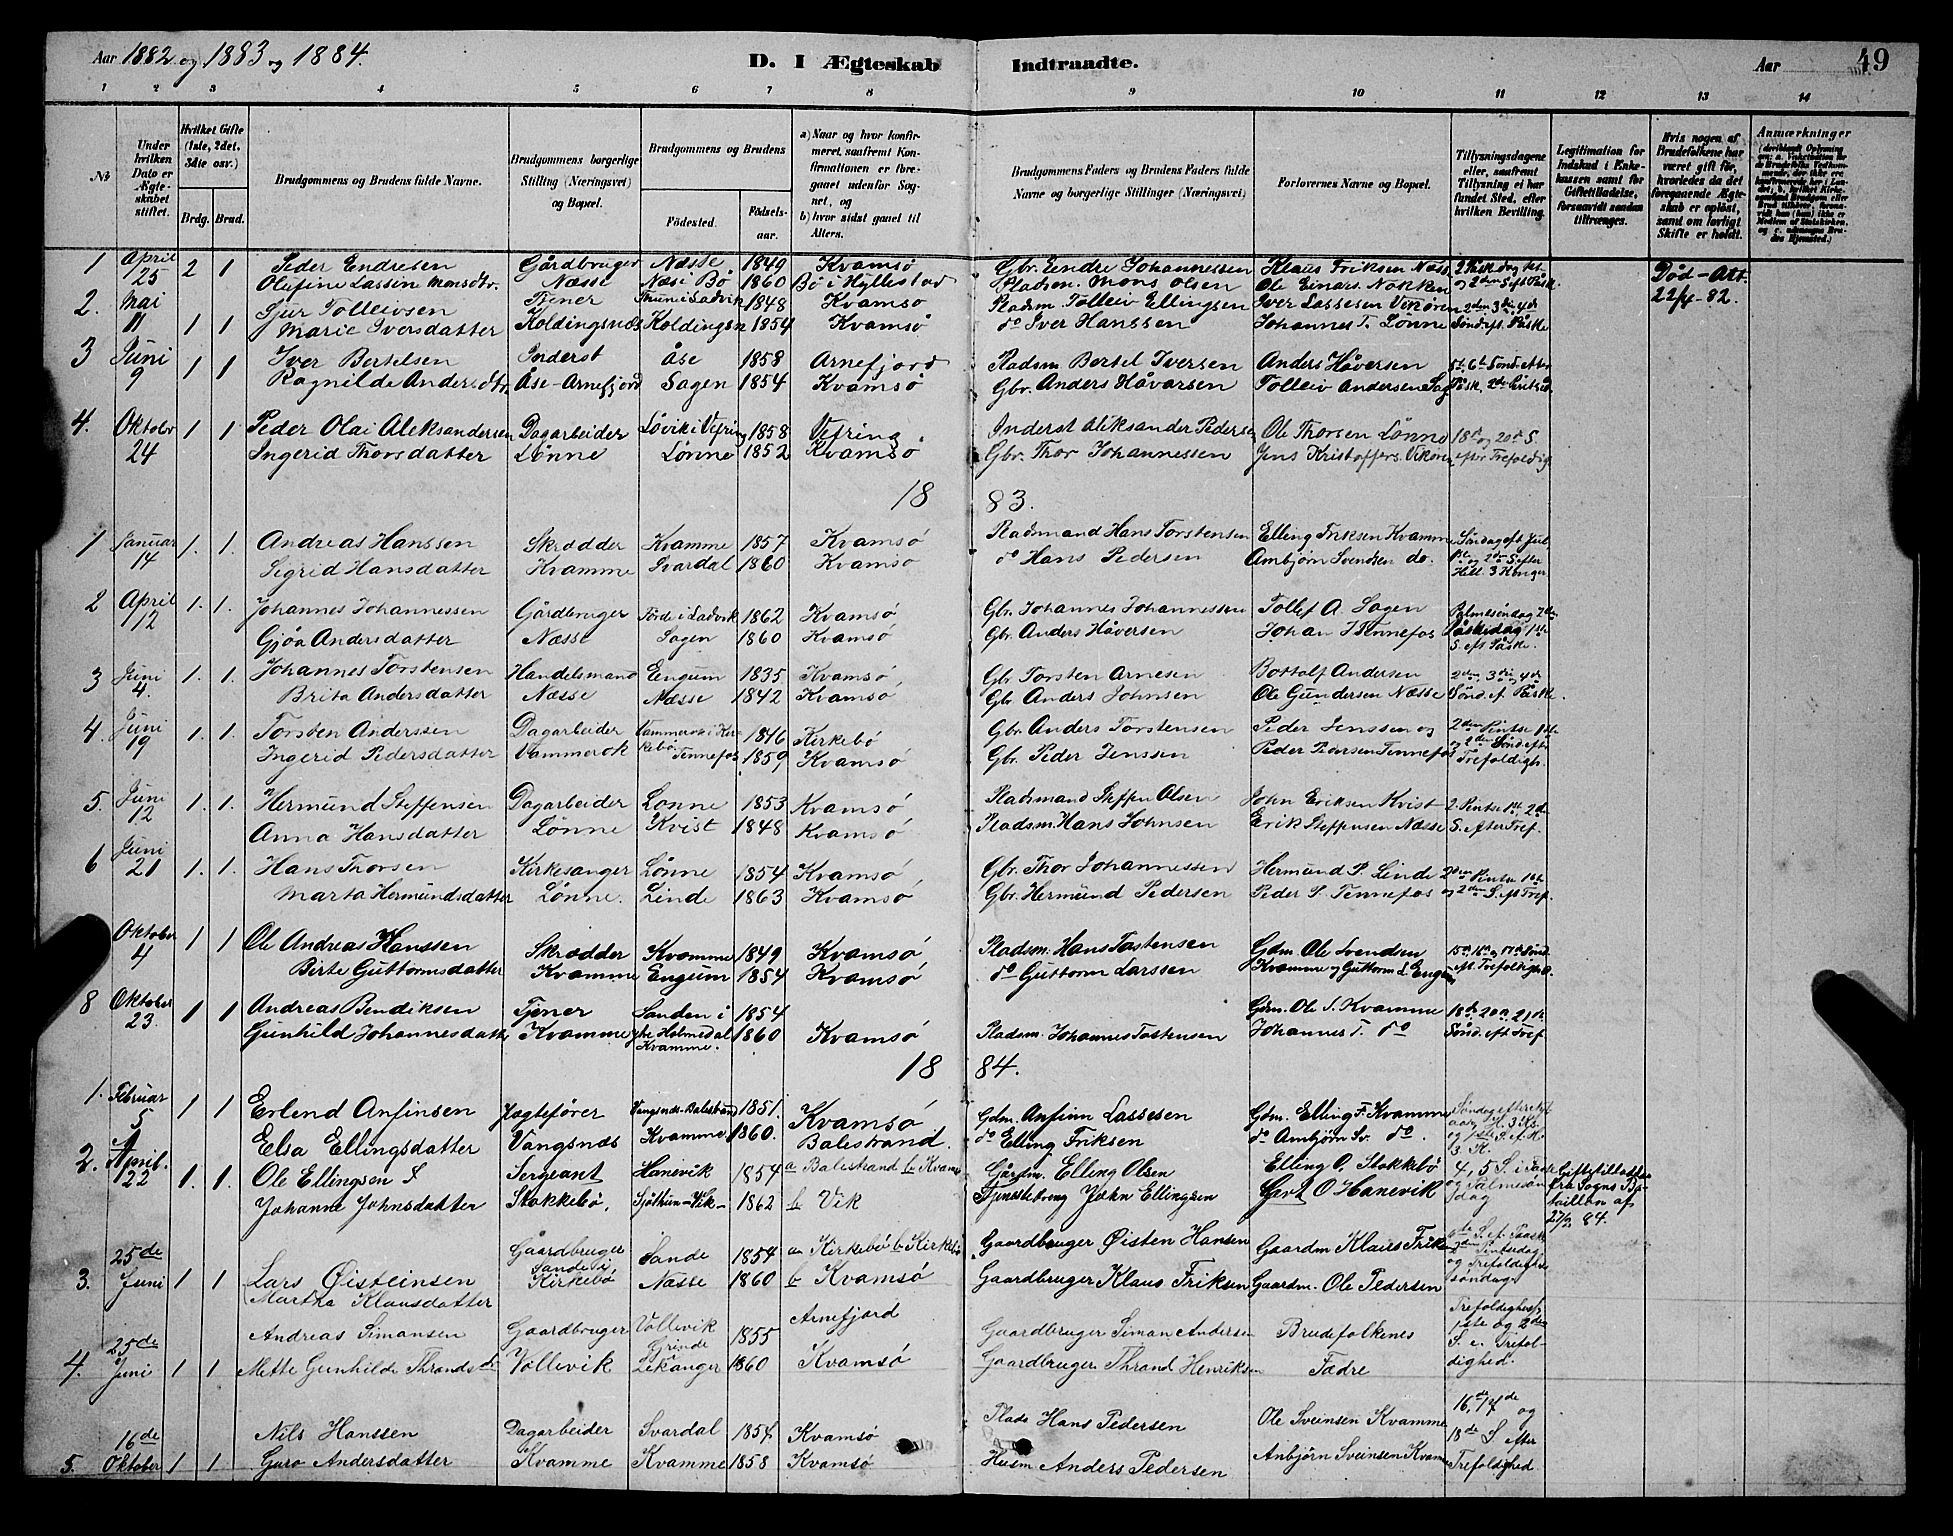 Aar 1882 og 1883 og 1884.
D. I Ægteskab Indtraadte.
Aar 49
1 2 3 4 5 6 7 8 9 10 11 12 13 14
No
Under hvilken Dato er Ægteskabet stiftet.
Hvilket Gifte (1ste, 2det, 3die osv.)
Brdg. Brud.
Brudgommens og Brudens fulde Navne.
Brudgommens borgerlige Stilling (Næringsvei) og Bopæl.
Brudgommens og Brudens
Födested. Födselsaar.
a) Naar og hvor konfirmeret, saafremt Konfirmationen er foregaaet udenfor Sognet, og
b) hvor sidst gaaet til Alters.
Brudgommens Faders og Brudens Faders fulde Navne og borgerlige Stillinger (Næringsvei)
Forlovernes Navne og Bopæl.
Tillysningsdagene eller, saafremt Tillysning ei har fundet Sted, efter hvilken Bevilling.
Legitimation for Indskud i Enkekassen samt for Giftetilladelse, forsaavidt saadan tiltrænges.
Hvis nogen af Brudefolkene har været gift för, hvorledes da det foregaaende Ægteskab er oplöst, samt om lovligt Skifte er holdt.
Anmærkninger
1 April 25 2 1 Peder Endresen Gårdbruger Næsse 1849 Kvamsö Gbr. Endre Johannessen Klaus Friksen Næss 2 Påskdag 1st Död - Att.
Olufine Lassin Monsdtr. Næsse Næsi Bö 1860 Bö i Hyllestad Pladsm. Mons Olsen Ole Einars. Nökken og 2den S eft Påsk. 22/4 - 82.
2. Mai Sjur Tolleivsen Tjener 1848 Kvamsö Pladsm. Tolleiv Ellingsen Iver Lassesen Vikören 2den 3die 4de
11 1 1 Marie Iversdatter Koldingsnæs Koldingsn 1854 Kvamsö do Iver Hanssen Johannes T. Lönne Sönd. eft. Påske
3 Juni 1 1 Iver Bertelsen Inderst Åse 1858 Arnefjord Pladsm Bertel Iversen Anders Håversen 5te 6te Sönd. efter
9 Ragnilde Andersdtr. Åse - Arnefjord Sagen 1854 Kvamsö Gbr. Anders Håvarsen Tolleiv Andersen Sag. Påsk.
4. Oktober 1 1 Peder Olai Aleksandersen Dagarbeider Lövik i Vefring 1858 Vefring Inderst Aleksander Pedersen Ole Thorsen Lönne 18de og 20de S.
24 Ingerid Thorsdatter Lönne Lönne 1852 Kvamsö Gbr. Thor Johannessen Jens Kristoffers. Vikören efter Trefoldig
18 83.
1 Januar 1. 1. Andreas Hanssen Skrædder Kvamme 1857 Kvamsö Pladsmand Hans Torstensen Elling Friksen Kvamme Söndag eft Jul
14 Sigrid Hansdatter Kvamme Svardal 1860 Kvamsö do Hans Pedersen Ambjörn Svendsen do. 1ste og 2den S. efter
Hell. 3 Konger
2 April 1. 1. Johannes Johannessen Gårdbruger Förde i Ladvik 1862 Kvamsö Gbr. Johannes Johannessen Tollef A. Sagen Palmesöndag
12 Gjöa Andersdatter Næsse Sagen 1860 Kvamsö Gbr. Anders Håversen Johan J Tennefos Påskedag 1ste
S. eft Påske.
3 Juni 1. 1. Johannes Torstensen Handelsmand Engum 1835 Kvamsö Gbr Torsten Arnesen Bottolf Andersen 2den, 3die, 4de
4. Brita Andersdatter Næsse Næsse 1842 Kvamsö Gbr Anders Johnsen Ole Gundersen Næsse Sönd. ef. Påske.
4. Juni 1. 1. Torsten Anderssen Dagarbeider 1846 Kirkebö Gbr. Anders Torstensen Peder Jenssen og 2den Pintse 1ste
19 Ingerid Pedersdatter Vammerok Tennefos 1859 Kvamsö Gbr. Peder Jenssen Peder Pedersen Tennefos og 2den Sönd. eft.
Trefoldigh.
5. Juni 1. 1. Hermund Steffensen Dagarbeider Lönne 1853 Kvamsö Pladsmand Steffen Olsen John Eriksen Kvist 2. Pintse 1st, 2den
12 Anna Hansdatter Lönne Kvist 1848 Kvamsö Pladsm. Hans Johnsen Erik Steffensen Næsse S. efter Tref.
6 Juni 21 1. 1. Hans Thorsen Kirkesanger Lönne 1854 Kvamsö Gbr. Thor Johannessen Hermund P. Linde 2den Pintse 1ste
Marta Hermundsdatter Lönne. Linde 1863 Kvamsö Gbr. Hermund Pedersen Peder P. Tennefos og 2den S. eft Tref.
Oktober 1 1 Ole Andreas Hanssen Skrædder Kvamme 1849 Kvamsö Pladsm. Hans Tostensen Gdm. Ole Svendsen 15de 16de og 17de Sönd
4 Birte Guttormsdatter Kvamme Engum 1854 Kvamsö do Guttorm Larssen Kvamme og Guttorm L Engum eft. Trefoldigh.
8 Oktober 1 1 Andreas Bendiksen Tjener Sanden i 1854 Gdm. Ole S. Kvamme 18de 20de 21de
23. Gunhild Johannesdatter Kvamme ytre Holmedal 1860 Kvamsö Pladsm. Johannes Tostensen Johannes T. do Sönd. eft Tref.
Kvamme.
18 84.
1. Februar 1 1 Erlend Anfinsen Jægtefører Vangsnæs-Balestrand 1851. Kvamsö Gdm. Anfinn Lassesen Gdm. Elling F. Kvamme
5 Elsa Ellingsdatter Vangsnæs Kvamme. 1860. Balestrand. do Elling Friksen do Ambjörn Sv. do.
2. April. 22 1. 1. Ole Ellingsen Sergeant Hanevik 1854 a Balestrand b Kvamsö Gårdm. Elling Olsen Elling O. Stokkebö 4, 5 S. i Faste Giftetilladelse
Johanne Johnsdatter Stokkebö, Vik 1862 b Vik John Ellingsen O Hanevik og Palmesöndag fra Sogns Bataillon af
27/2 84.
3. 25de Juni 1 1 Lars Øisteinsen Gaardbruger Sande i Kirkebø Sande 1854 a Kirkebø b Kirkebø Gaardbruger Øisten Hansen Gaardm Klaus Friksen
Martha Klausdatter Næsse 1860 b Kvamsø Gaardbruger Klaus Friksen Gaardm. Ole Pedersen Pintsedag og Trefoldigheds söndag
4. 25de Juni 1 1 Andreas Simansen Gaardbruger Vollevik 1855 Arnefjord Gaardbruger Siman Andersen Brudefolkenes Trefoldighedsf. 1ste og 2den
Mette Gunhilde Thrandsdr. Vollevik Grinde Lekanger 1860 Kvamsø Gaardbruger Thrand Henriksen Fædre S. e. Trefoldighed.
5. 16de Oktober 1 1 Nils Hanssen Dagarbeider Svardal 1854 Kvamsø Plads Hans Pedersen Ole Sveinsen Kvamme 16de, 17de og
Guro Andersdatter Kvamme Kvamme 1858 Kvamsø Husm Anders Pedersen Anbjörn Sveinsen Kvamme 18de S efter Trefoldighed.